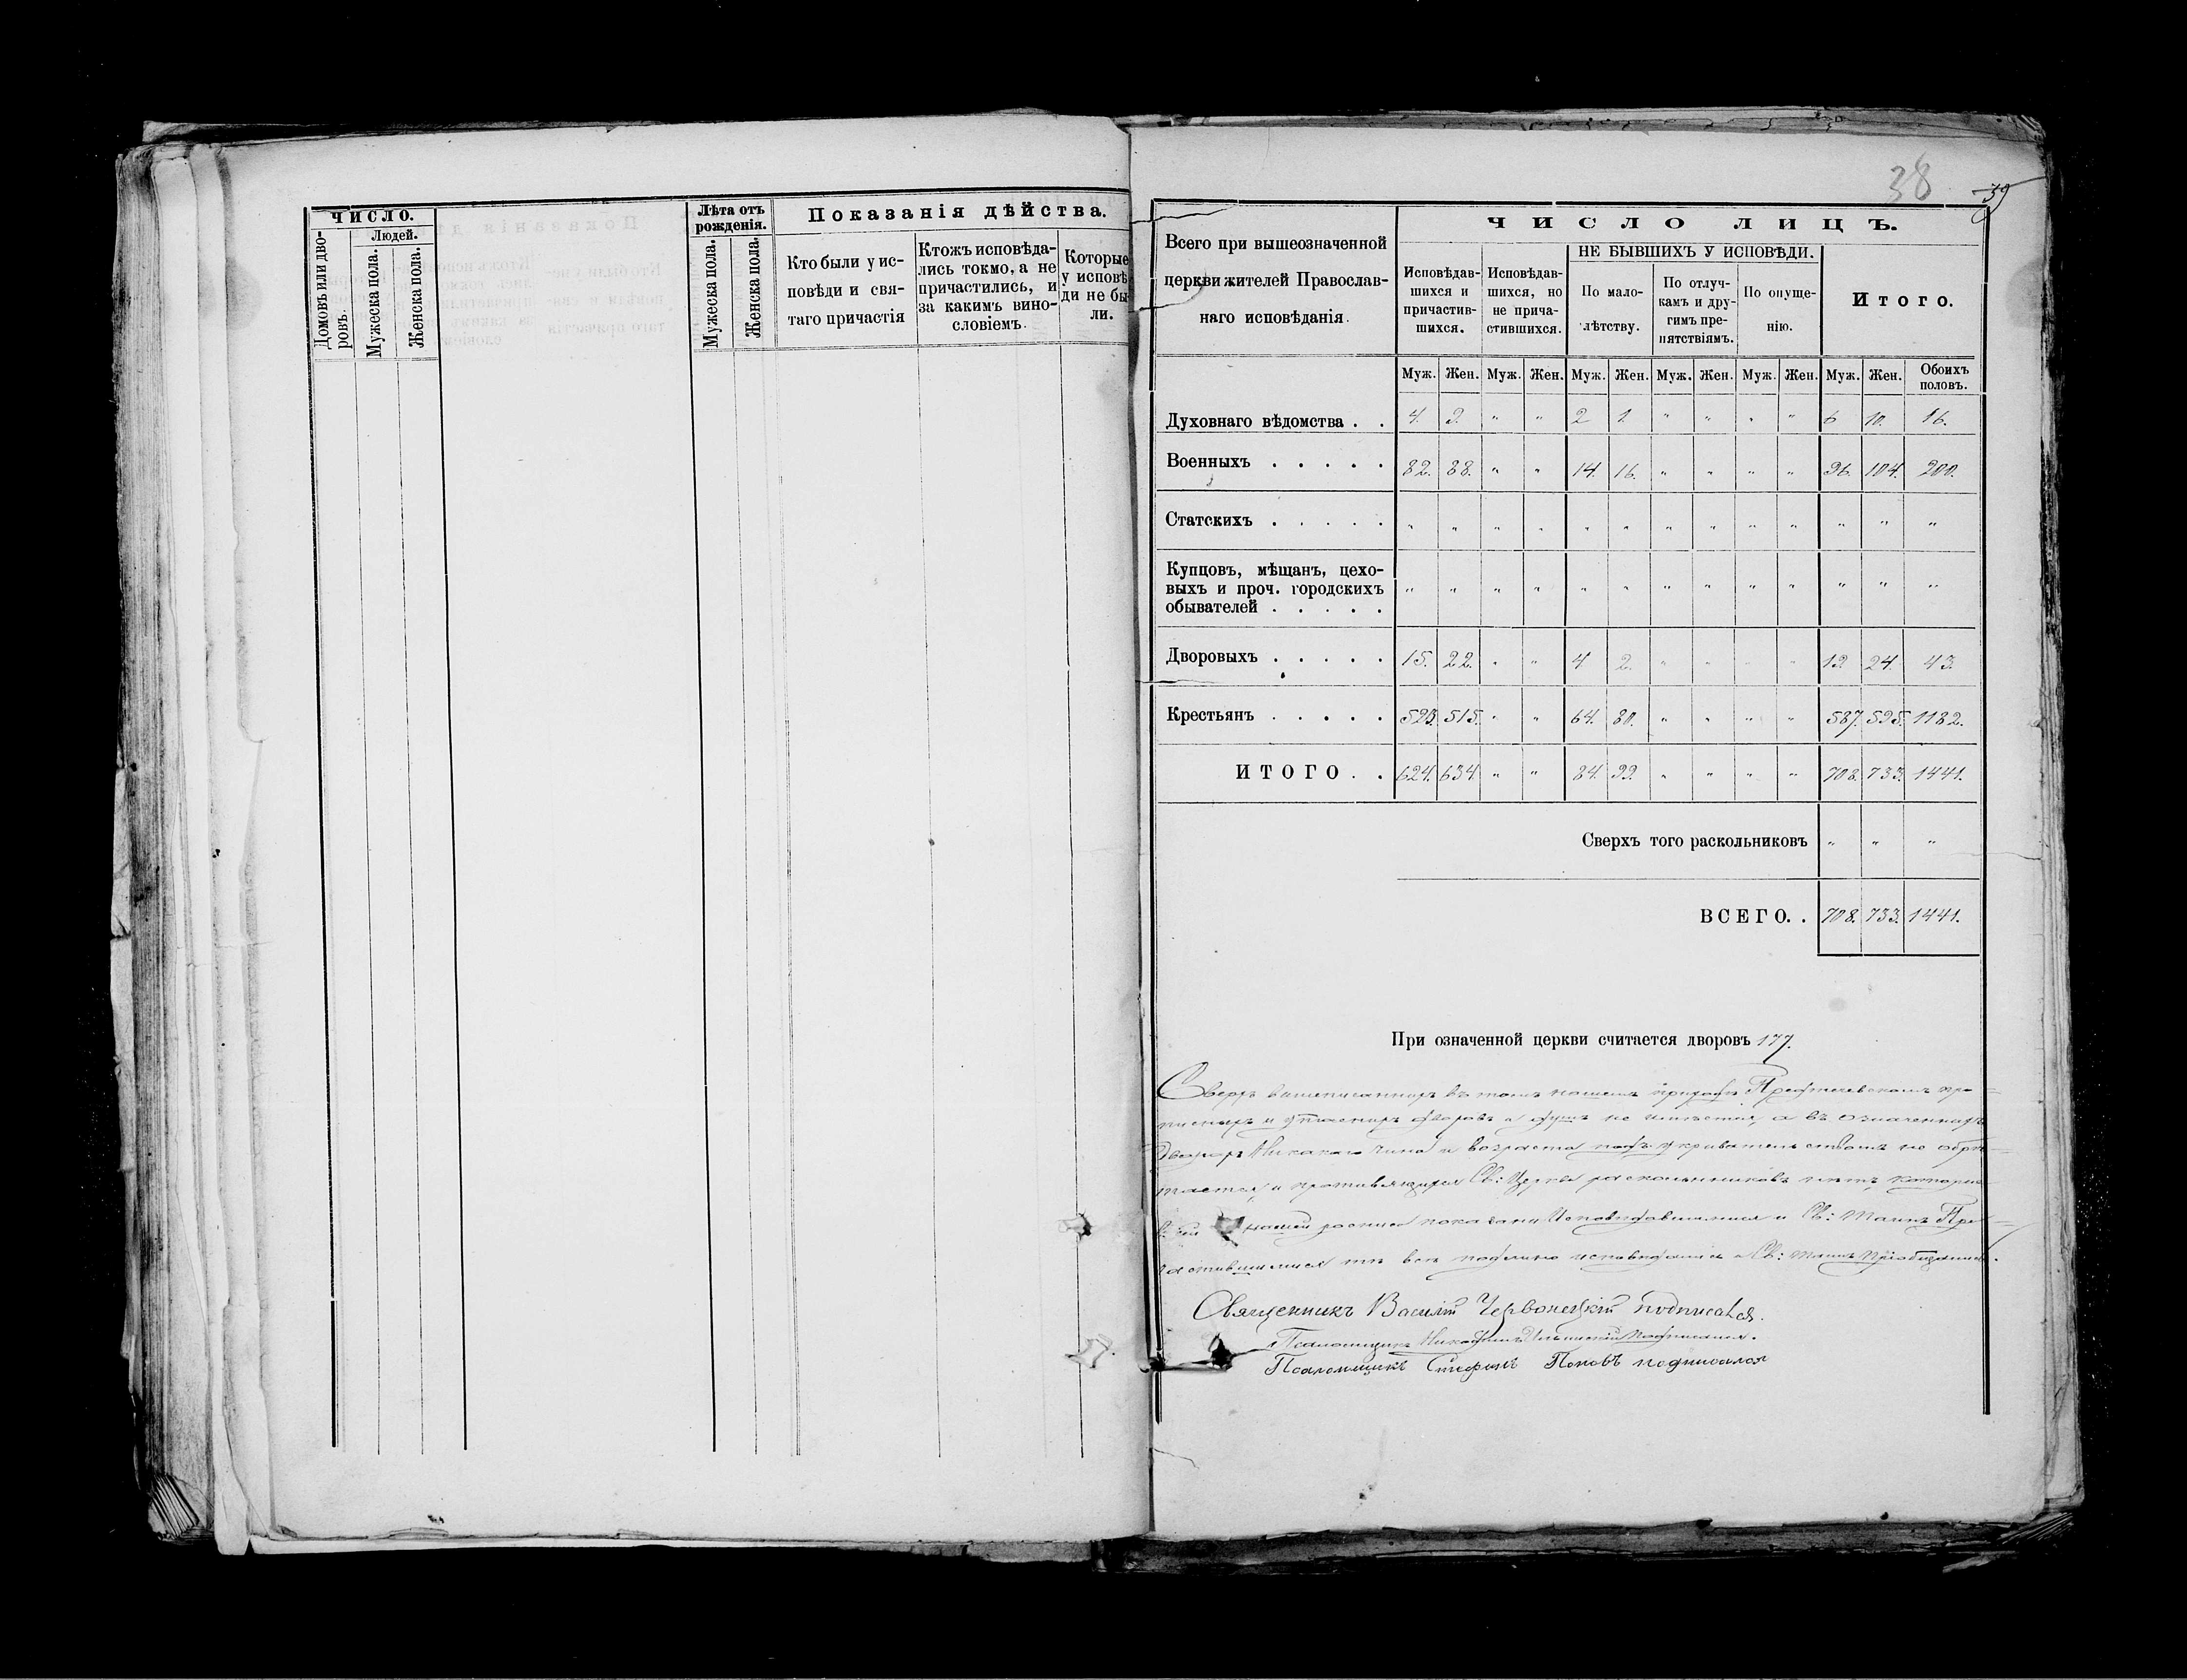 ЧИСЛО.
Домовъ или дво-
ровъ.
Людей.
Мужеска пола.
Женска пола.
Лѣта отъ
рожденія.
Мужеска пола.
Женска пола.
Показанія дѣйства.
Кто были у ис-
повѣди и свя-
таго причастія
Ктожъ исповѣда-
лись токмо, а не
причастились, и
за какимъ вино-
словіемъ.
Которые
у исповѣ-
ди не бы-
ли.
38
39
Всего при вышеозначенной
церкви жителей Православ-
наго исповѣданія.
ЧИСЛО ЛИЦЪ.
Исповѣдав-
шихся и
причастив-
шихся.
Исповѣдав-
шихся, но
не прича-
стившихся.
НЕ БЫВШИХЪ У ИСПОВѢДИ.
По мало-
лѣтству.
По отлуч-
камъ и дру-
гимъ пре-
пятствіямъ.
По опуще-
нію.
Итого.
Муж. Жен. Муж. Жен. Муж. Жен. Муж. Жен. Муж. Жен. Муж. Жен. Обоихъ
половъ.
Духовнаго вѣдомства . . 4. 9. " " 2 1. " " " " 6 10. 16.
Военныхъ . . . . . 82. 88. " " 14. 16. " " " " 96. 104. 200.
Статскихъ . . . . . " " " " " " " " " " " " "
Купцовъ, мѣщанъ, цехо-
выхъ и проч. городскихъ
обывателей . . . . . " " " " " " " " " " " " "
Дворовыхъ . . . . . 15. 22. " " 4 2. " " " " 19. 24. 43.
Крестьянъ . . . . . 523. 515. " " 64. 80. " " " " 587. 595. 1182.
ИТОГО . . 624. 634. " " 84. 99. " " " " 708. 733. 1441.
Сверхъ того раскольниковъ " " "
ВСЕГО. . 708. 733. 1441.
При означенной церкви считается дворовъ 177.
Сверхъ вышеписанныхъ въ томъ нашемъ приходѣ Предтечевскомъ про-
писныхъ и утаенныхъ дворовъ и душъ не имѣется, а въ означенныхъ
дворахъ никакаго чина и возраста подъ укривательствомъ не обрѣ-
тается, и противящихся Св: Церкви раскольниковъ нѣтъ, которые
въ сей нашей росписи показаны Исповѣдавшимися и Св: Таинъ При-
частившимися тѣ всѣ подлино исповѣдались и Св: Таинъ Пріобщились.
Священникъ Василій Червонецкій подписался.
Псаломщикъ Никодимъ Ильинскій Подписался.
Псаломщикъ Стефанъ Поповъ подписался